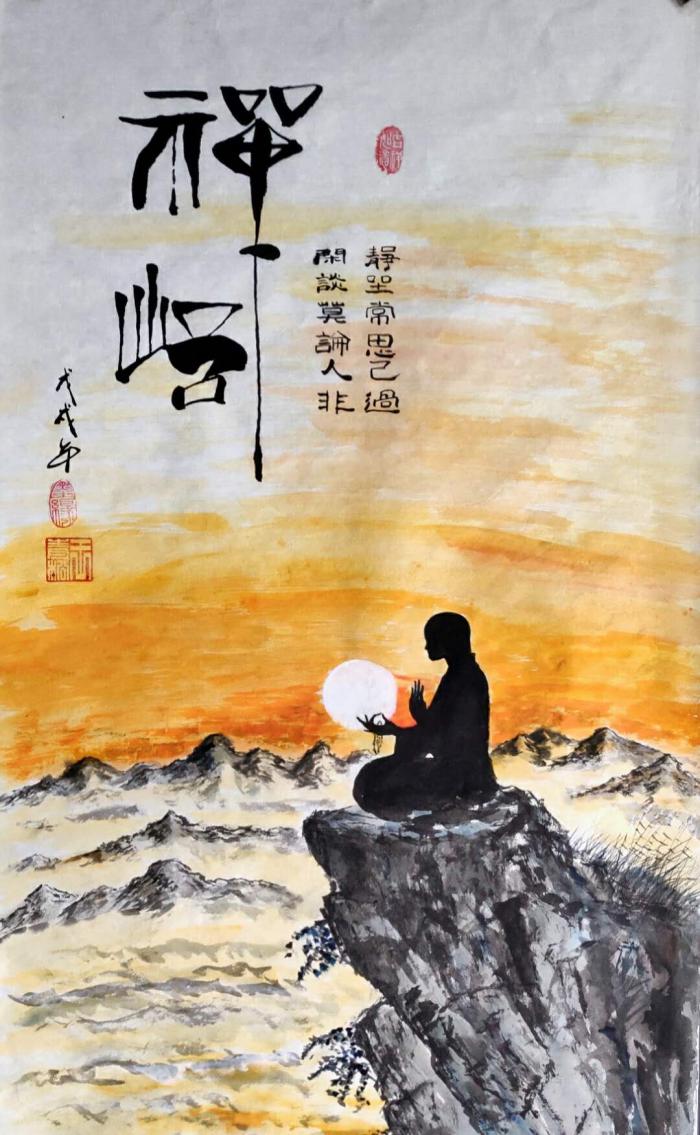 禪悟
靜坐常思己過
閑談莫論人非
戊戌年
吉祥如意